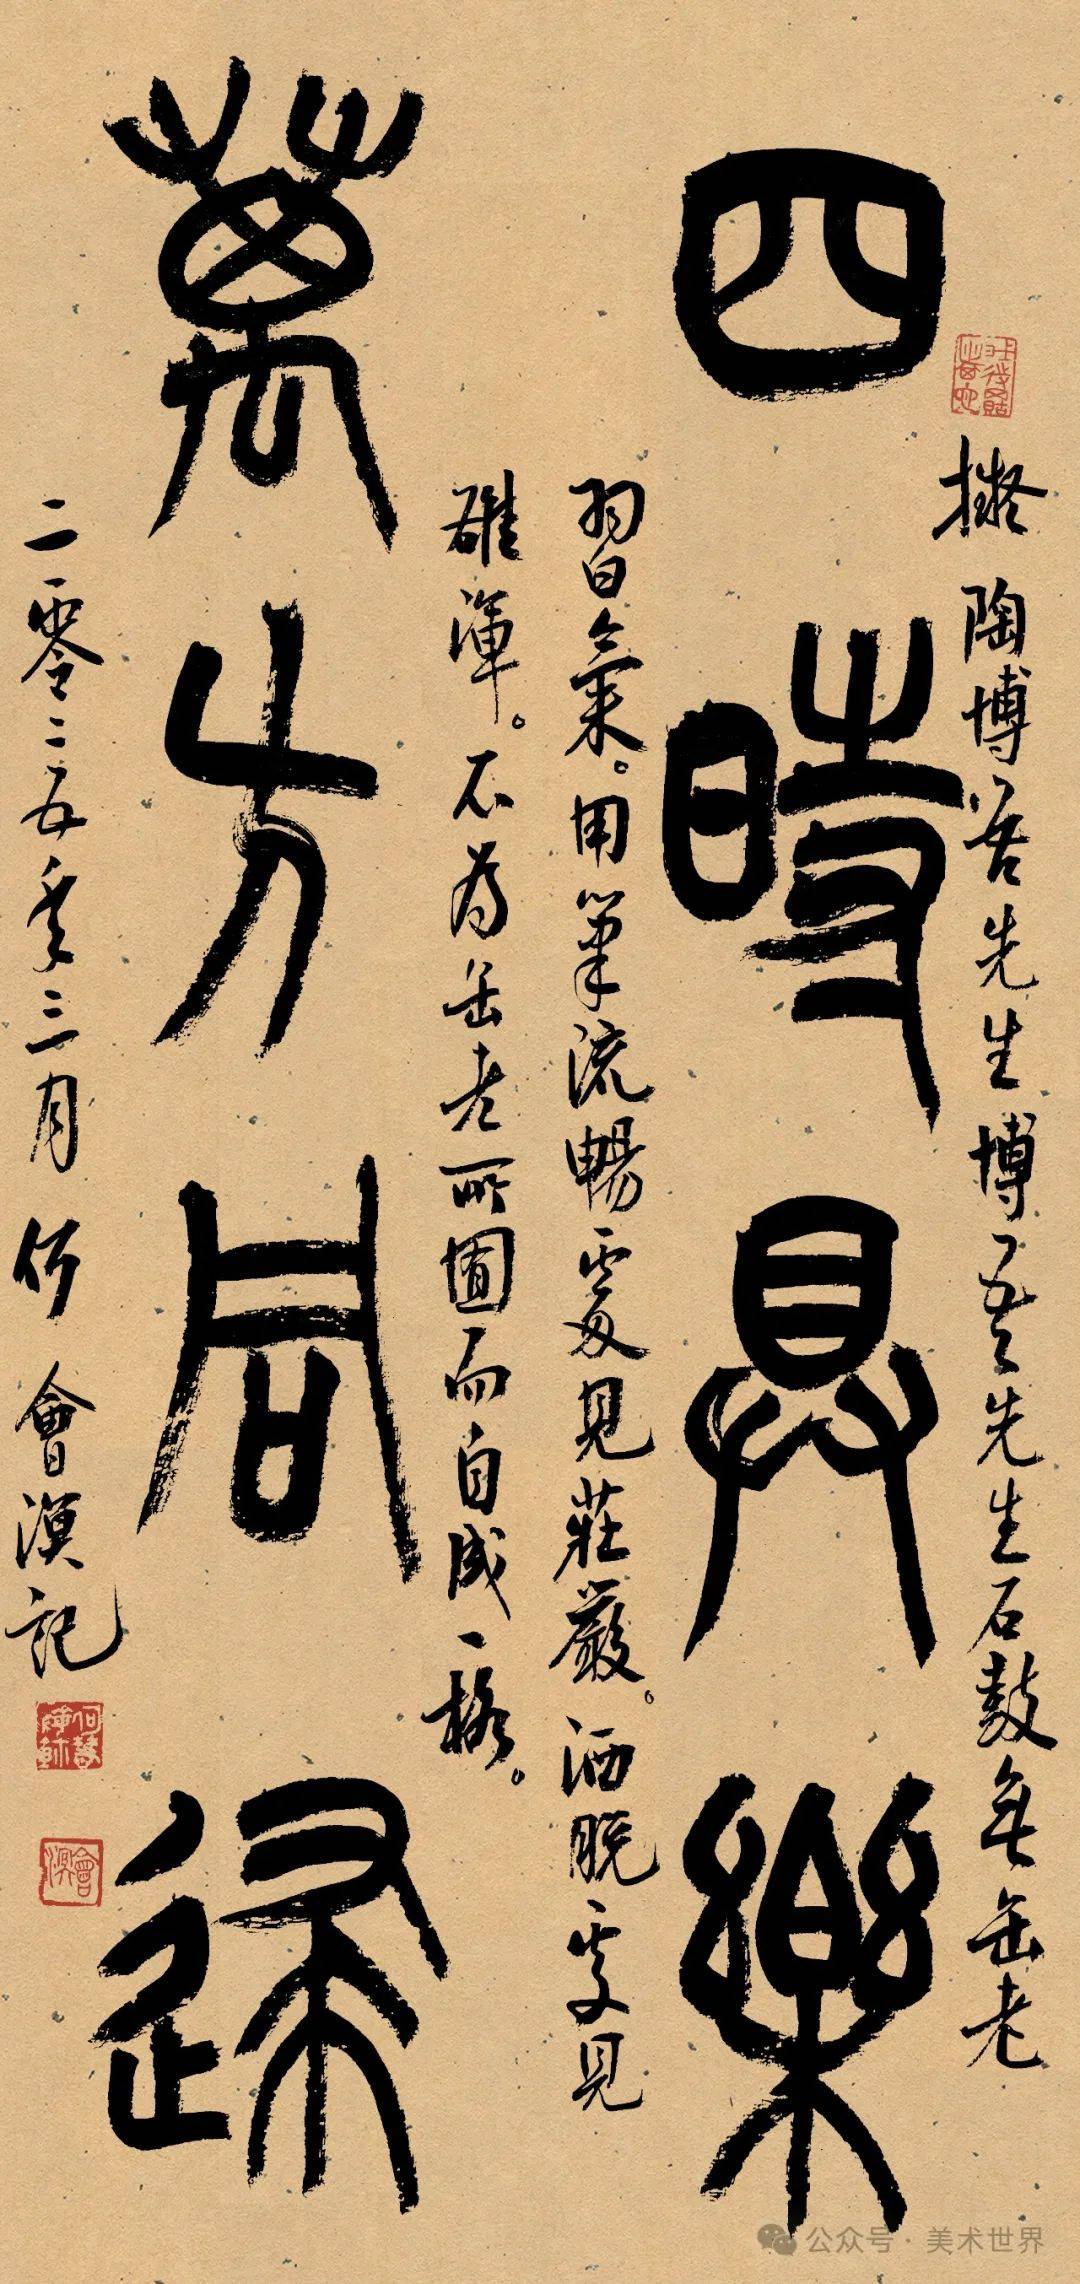 四時具樂
萬方同歸
擬陶博吾先生博吾先生石鼓無缶老
習氣。用筆流暢處見莊嚴。洒脫處見
雄渾。不為缶老所囿而自成一格。
二零二五年三月何會記
公众号·美术世界